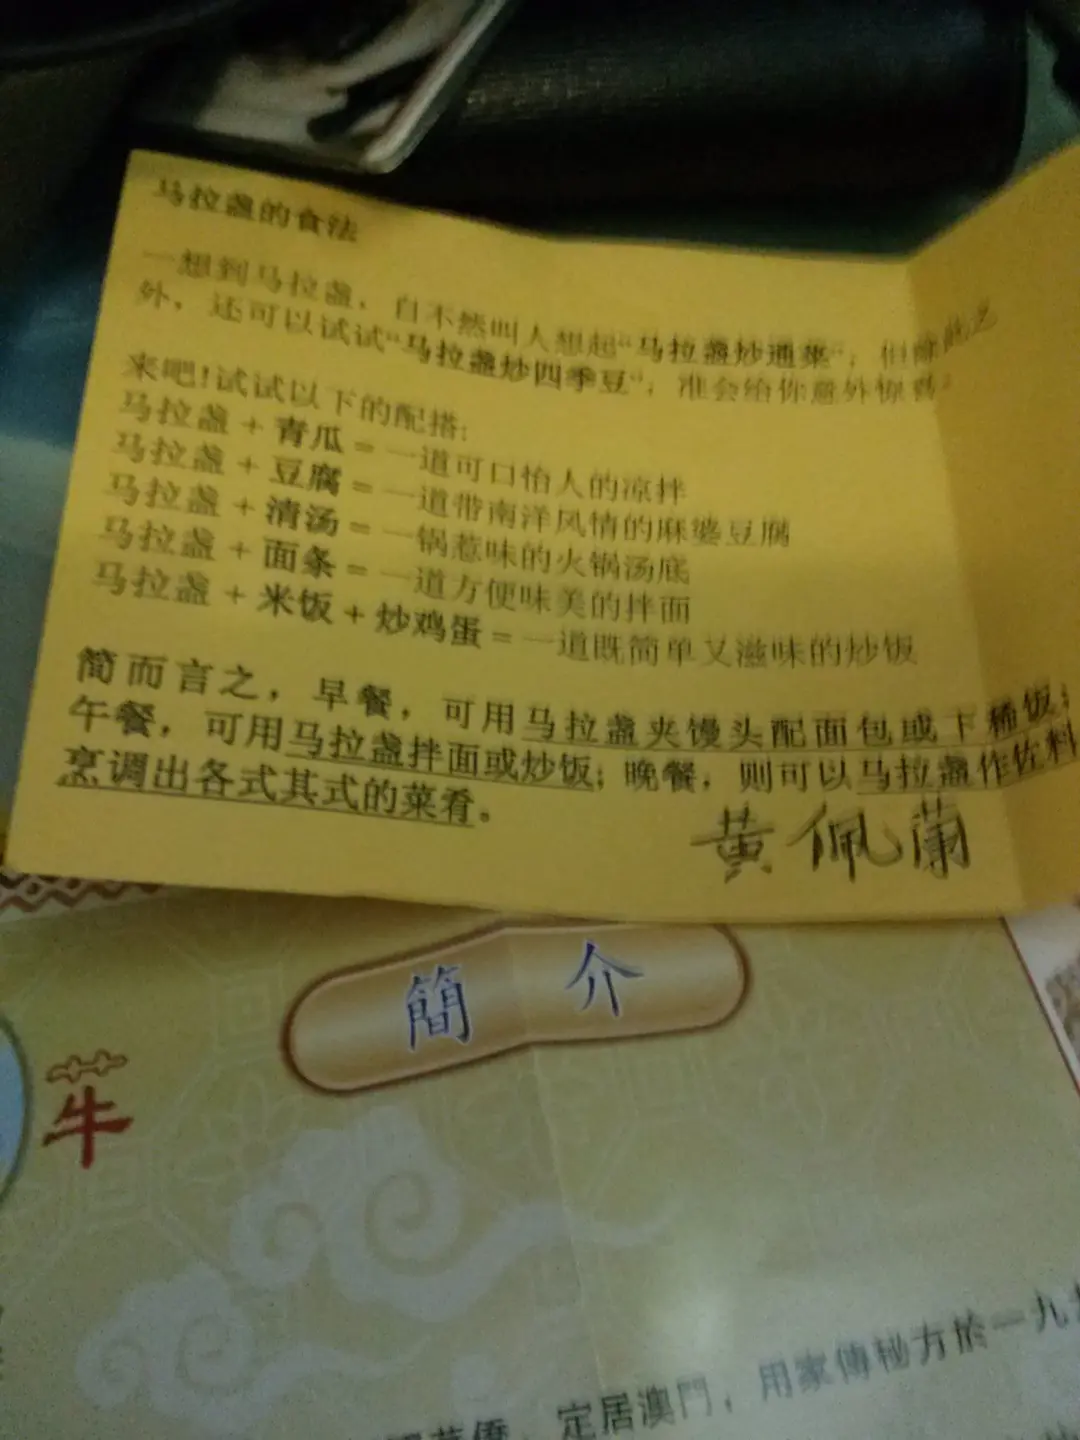 马拉盏的食法
一想到马拉盏，自不然叫人想起“马拉盏炒通菜”，但除此之
外，还可以试试“马拉盏炒四季豆”，准会给你意外惊喜！
来吧!试试以下的配搭:
马拉盏 + 青瓜 = 一道可口怡人的凉拌
马拉盏 + 豆腐 = 一道带南洋风情的麻婆豆腐
马拉盏 + 清汤 = 一锅惹味的火锅汤底
马拉盏 + 面条 = 一道方便味美的拌面
马拉盏 + 米饭 + 炒鸡蛋 = 一道既简单又滋味的炒饭
简而言之，早餐，可用马拉盏夹馒头配面包或下稀饭；
午餐，可用马拉盏拌面或炒饭；晚餐，则可以马拉盏作佐料
烹调出各式其式的菜肴。
黄佩蘭
簡 介
牛
僑，定居澳門，用家傳秘方於一九